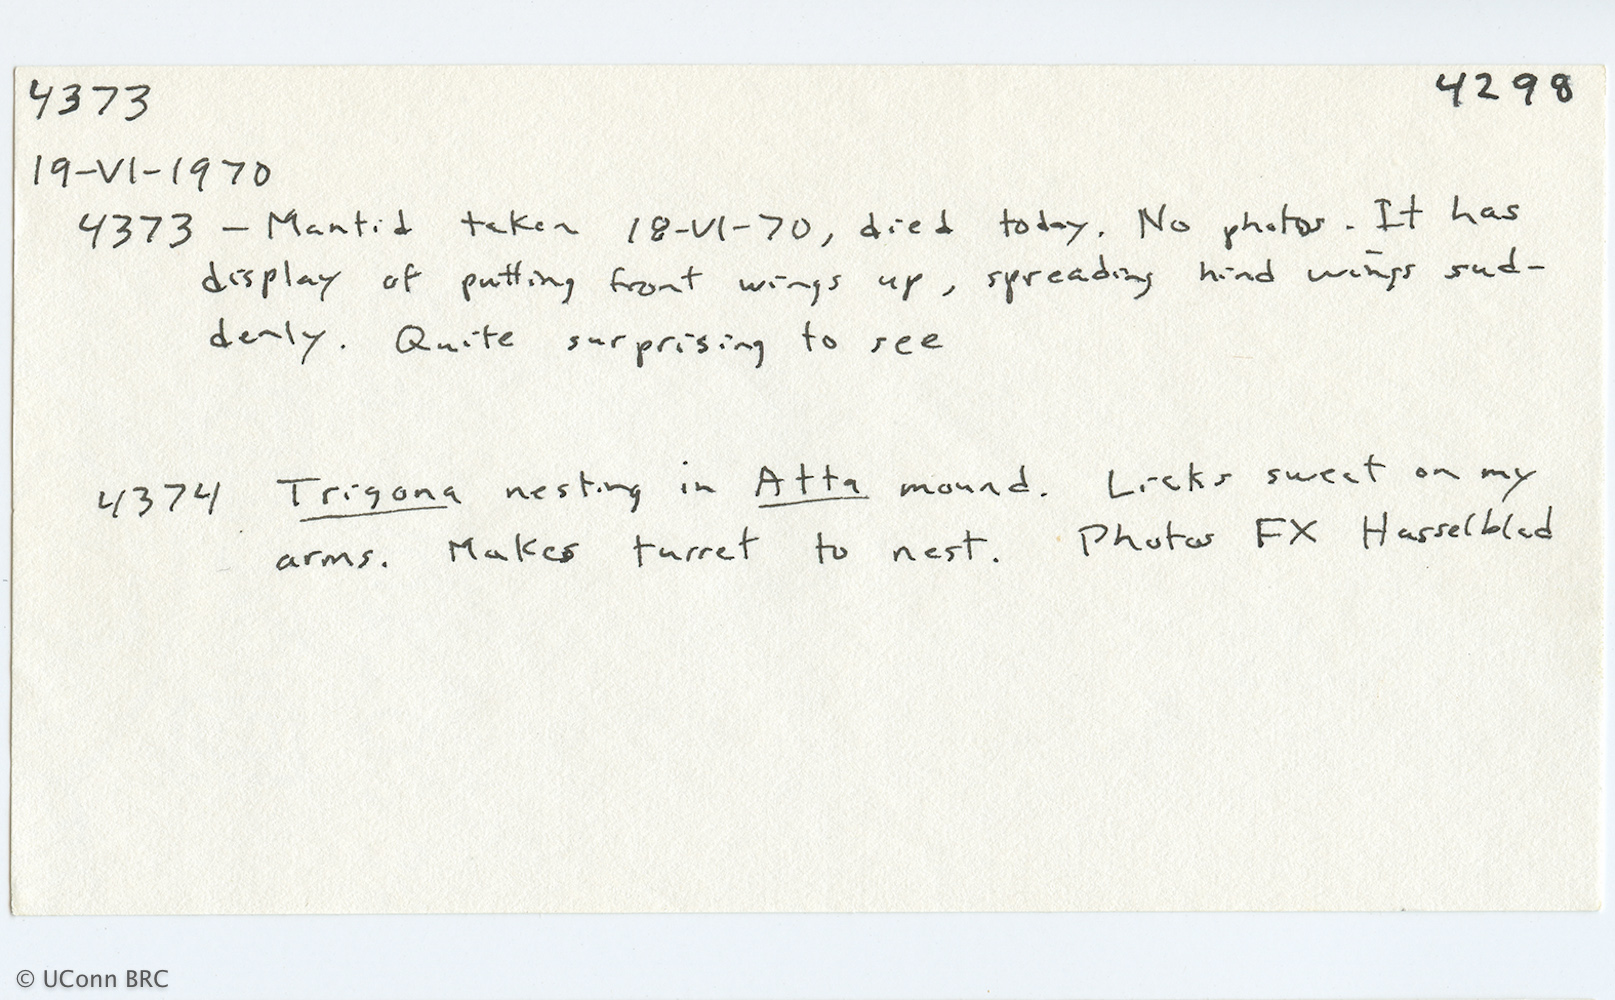 4373 4298
19-VI-1970
4373 - Mantid taken 18-VI-70, died today. No photos. It has
display of putting front wings up, spreading hind wings sud-
denly. Quite surprising to see
4374 Trigona nesting in Atta mound. Licks sweat on my
arms. Makes turret to nest. Photos FX Hasselblad
© UConn BRC